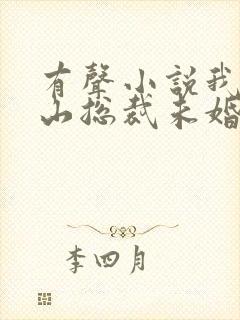 有聲小説我
山总裁未婚
李四月